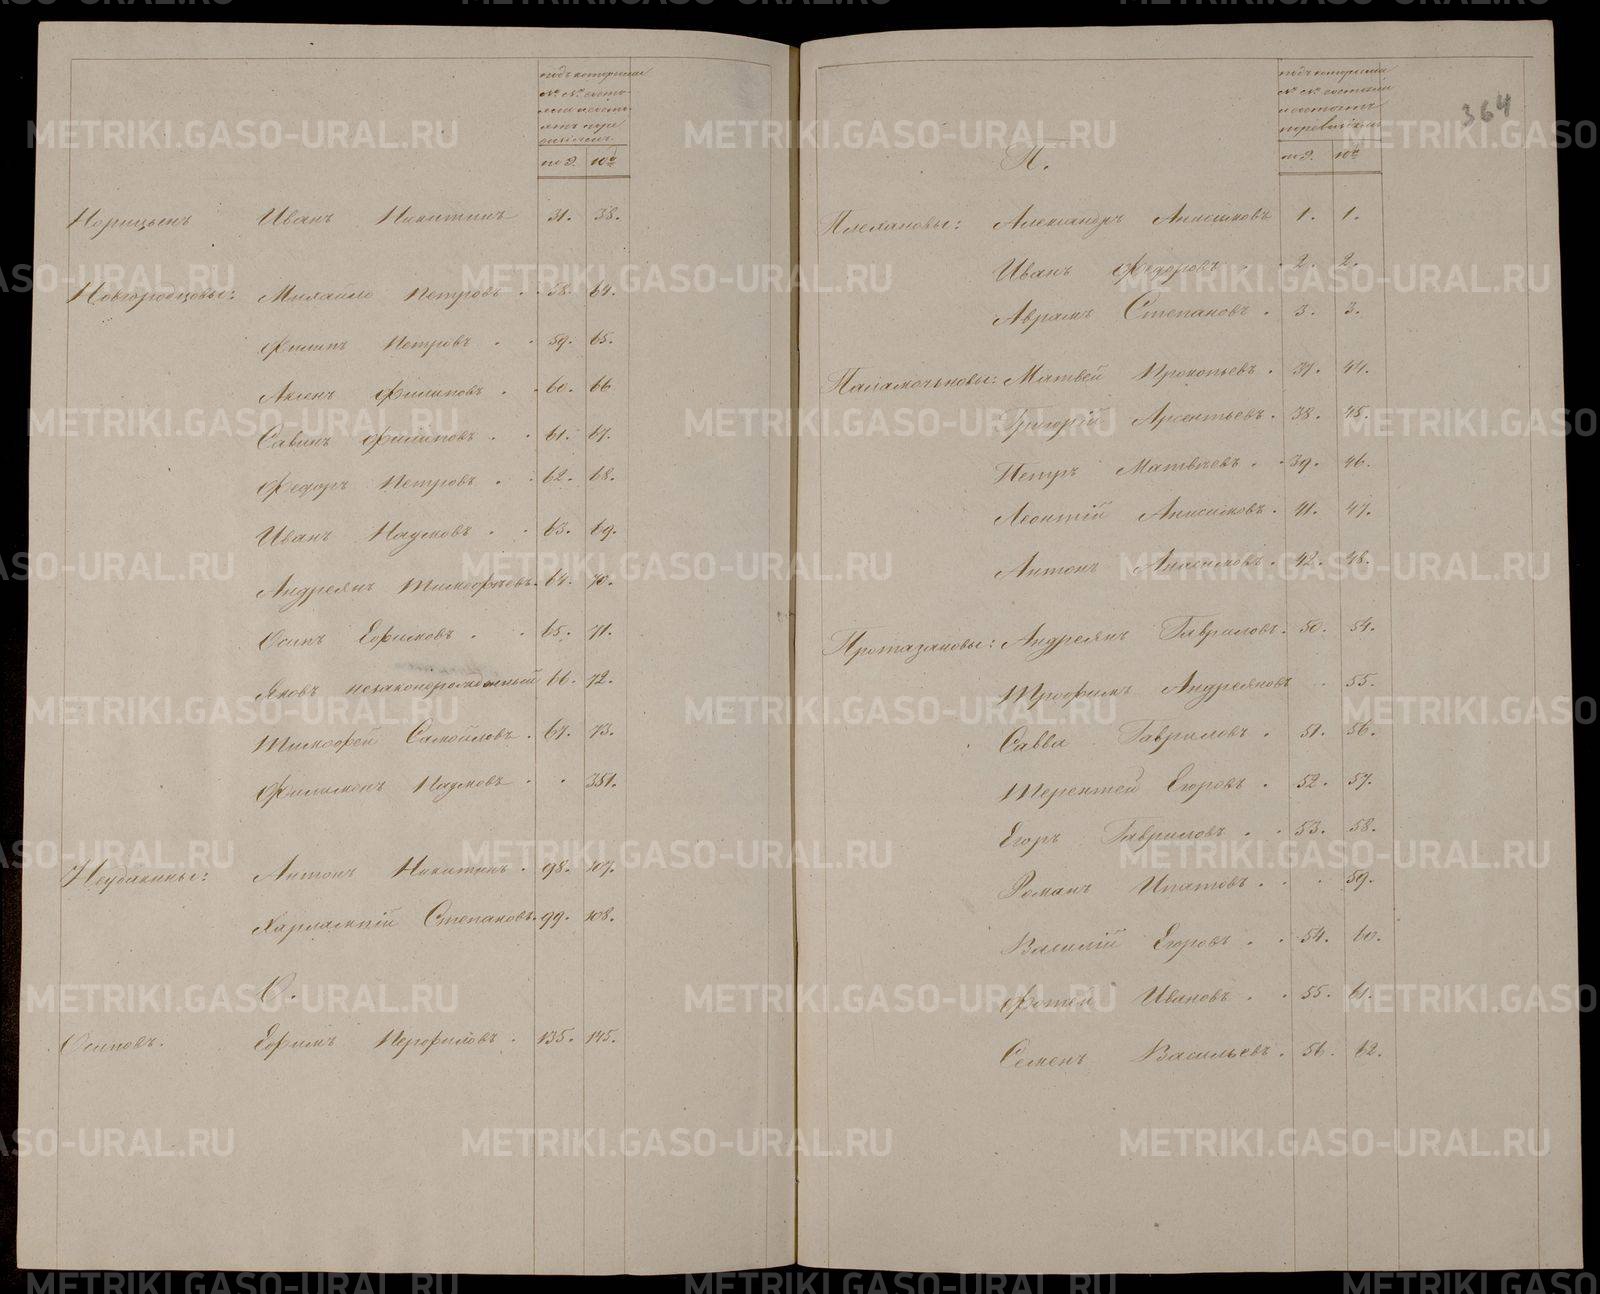 подъ которыми
№ № состо-
по 9. 10й
Норицынъ Иванъ Никитинъ 31. 38.
Новгородцовы: Михайло Петровъ 58. 64.
Филипъ Петровъ 59. 65.
Аксенъ Филиповъ 60. 66
Савинъ Филиповъ 61. 67.
Федоръ Петровъ 62. 68.
Иванъ Наумовъ 63. 69.
Андреянъ Тимофѣевъ 64. 70.
Осипъ Ефимовъ 65. 71.
Яковъ незаконорожденный 66. 72.
Тимофей Самойловъ 67. 73.
Филимонъ Наумовъ 351.
Неудакины: Антонъ Никитинъ 98. 107.
Харлампій Степановъ 99. 108.
О.
Осиповъ. Ефимъ Перфиловъ 135. 145.
364
подъ которыми
№ № состояли
и состоятъ
по 9. 10й
П.
Плехановы: Александръ Анисимовъ 1. 1.
Иванъ Федоровъ 2. 2.
Аврамъ Степановъ 3. 3.
Матвей Прокопьевъ 37. 44.
Григорій Арсентьевъ 38. 45.
Петръ Матвѣевъ 39. 46.
Леонтій Анисимовъ 41. 47.
Антонъ Анисимовъ 42. 48.
Протазановы: Андреянъ Гавриловъ 50. 54.
Трофимъ Андреяновъ 55.
Савва Гавриловъ 51. 56.
Терентей Егоровъ 52. 57.
Егоръ Гавриловъ 53. 58.
Романъ Ипатовъ 59.
Василій Егоровъ 54. 60.
Фотей Ивановъ 55. 61.
Семенъ Васильевъ 56. 62.
METRIKI.GASO-URAL.RU